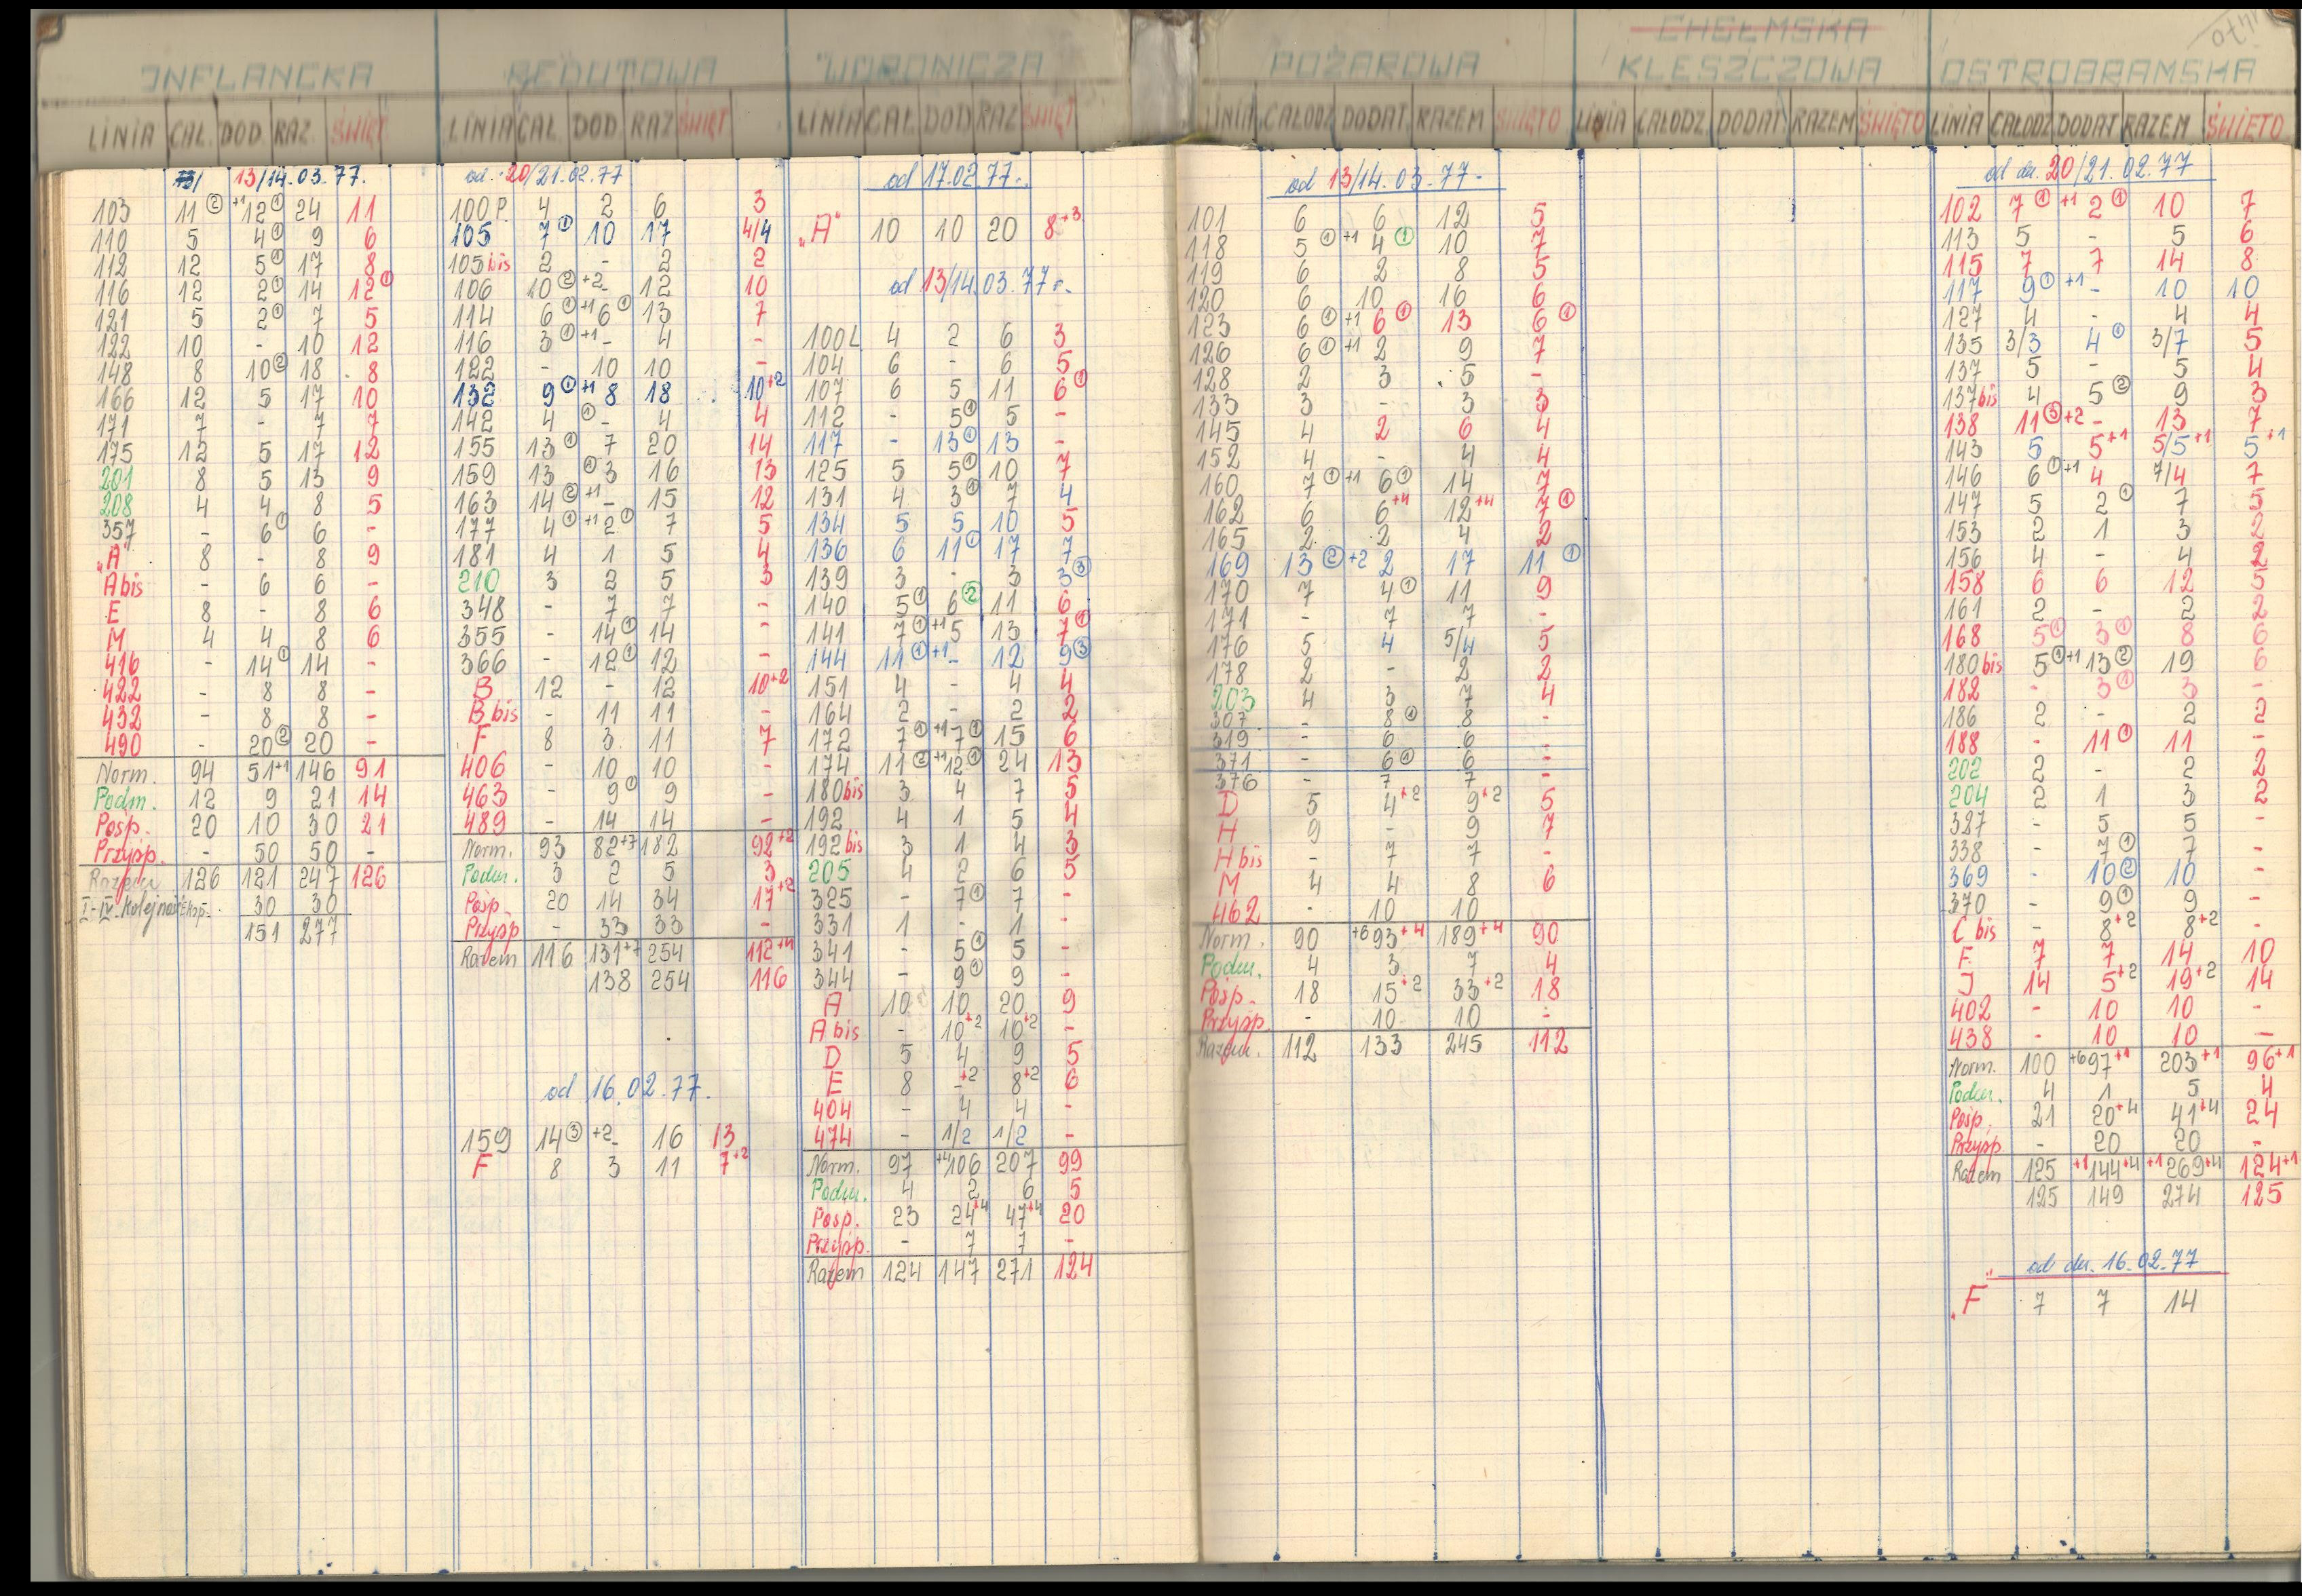 INFLANCKA
LINIA CAŁ. DOD RAZ. ŚWIĘT
13/14.03.77.
103 11② +1 12① 24 11
110 5 4① 9 6
112 12 5① 17 8
116 12 2① 14 12①
121 5 2① 7 5
122 10 - 10 12
148 8 10② 18 8
166 12 5 17 10
171 7 - 7 7
175 12 5 17 12
201 8 5 13 9
208 4 4 8 5
357 - 6① 6 -
„A" 8 - 8 9
A bis - 6 6 -
E 8 - 8 6
M 4 4 8 6
416 - 14① 14 -
422 - 8 8 -
432 - 8 8 -
490 - 20② 20 -
Norm. 94 51+1 146 91
Podm. 12 9 21 14
Posp. 20 10 30 21
Przysp. - 50 50 -
Razem 126 121 247 126
I-IV kolejność 30 30
151 277
REDUTOWA
LINIA CAŁ. DOD RAZ ŚWIĘT
od. 20/21.02.77
100 P. 4 2 6 3
105 7① 10 17 4/4
105 bis 2 - 2 2
106 10② +2 - 12 10
114 6① +1 6① 13 7
116 3① +1 - 4 -
122 - 10 10 -
132 9① +1 8 18 10+2
142 4① - 4 4
155 13① 7 20 14
159 13① 3 16 13
163 14② +1 - 15 12
177 4① +1 2① 7 5
181 4 1 5 4
210 3 2 5 3
348 - 7 7 -
355 - 14① 14 -
366 - 12① 12 -
B 12 - 12 10+2
B bis - 11 11 -
F 8 3 11 7
406 - 10 10 -
463 - 9① 9 -
489 - 14 14 -
Norm. 93 82+7 182 92+2
Podm. 3 2 5 3
Posp. 20 14 34 17+2
Przysp - 33 33 -
Razem 116 131+7 254 112+4
138 254 116
od 16.02.77.
159 14③ +2 - 16 13
F 8 3 11 7+2
WORONICZA
LINIA CAŁ DOD RAZ ŚWIĘT
od 17.02.77.
„A" 10 10 20 8+3
od 13/14.03.77 r.
100 L 4 2 6 3
104 6 - 6 5
107 6 5 11 6①
112 - 5① 5 -
117 - 13① 13 -
125 5 5① 10 7
131 4 3① 7 4
134 5 5 10 5
136 6 11① 17 7
139 3 - 3 3③
140 5① 6② 11 6
141 7① +1 5 13 7①
144 11① +1 - 12 9③
151 4 - 4 4
164 2 - 2 2
172 7① +1 7① 15 6
174 11② +1 12① 24 13
180 bis 3 4 7 5
192 4 1 5 4
192 bis 3 1 4 3
205 4 2 6 5
325 - 7① 7 -
331 1 - 1 -
341 - 5① 5 -
344 - 9① 9 -
A 10 10 20 9
A bis - 10+2 10+2 -
D 5 4 9 5
E 8 -+2 8+2 6
404 - 4 4 -
474 - 1/2 1/2 -
Norm. 97 +4 106 207 99
Podm. 4 2 6 5
Posp. 23 24+4 47+4 20
Przysp. - 7 7 -
Razem 124 147 271 124
POŻAROWA
LINIA CAŁODZ DODAT. RAZEM ŚWIĘTO
od 13/14.03.77.
101 6 6 12 5
118 5① +1 4① 10 7
119 6 2 8 5
120 6 10 16 6
123 6① +1 6① 13 6①
126 6① +1 2 9 7
128 2 3 5 -
133 3 - 3 3
145 4 2 6 4
152 4 - 4 4
160 7① +1 6① 14 7
162 6 6+4 12+4 7①
165 2 2 4 2
169 13② +2 2 17 11①
170 7 4① 11 9
171 - 7 7 -
176 5 4 5/4 5
178 2 - 2 2
203 4 3 7 4
307 - 8① 8 -
319 - 6 6 -
371 - 6① 6 -
376 - 7 7 -
D 5 4+2 9+2 5
H 9 - 9 7
H bis - 7 7 -
M 4 4 8 6
462 - 10 10
Norm. 90 +6 93+4 189+4 90
Podm. 4 3 7 4
Posp. 18 15+2 33+2 18
Przysp - 10 10 -
Razem. 112 133 245 112
CHEŁMSKA
KLESZCZOWA
LINIA CAŁODZ DODAT RAZEM ŚWIĘTO
OSTROBRAMSKA
LINIA CAŁODZ DODAT RAZEM ŚWIĘTO
od dn. 20/21.02.77
102 7① +1 2① 10 7
113 5 - 5 6
115 7 7 14 8
117 9① +1 - 10 10
127 4 - 4 4
135 3/3 4① 3/7 5
137 5 - 5 4
137 bis 4 5② 9 3
138 11③ +2 - 13 7
143 5 5+1 5/5+1 5+1
146 6① +1 4 7/4 7
147 5 2① 7 5
153 2 1 3 2
156 4 - 4 2
158 6 6 12 5
161 2 - 2 2
168 5① 3① 8 6
180 bis 5① +1 13② 19 6
182 - 3① 3 -
186 2 - 2 2
188 - 11① 11 -
202 2 - 2 2
204 2 1 3 2
327 - 5 5 -
338 - 7① 7 -
369 - 10② 10 -
370 - 9① 9 -
C bis - 8+2 8+2 -
F 7 7 14 10
J 14 5+2 19+2 14
402 - 10 10 -
438 - 10 10 -
Norm. 100 +6 97+1 203+1 96+1
Podm. 4 1 5 4
Posp. 21 20+4 41+4 24
Przysp - 20 20 -
Razem 125 +1 144+4 +1 269+4 124+1
125 149 274 125
od dn. 16.02.77
„F" 7 7 14